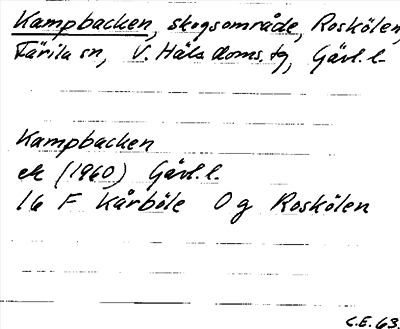 Kampbacken, skogsområde, Roskölen,
Färila sn, V. Häls. doms. tg, Gävl. l.
Kampbacken
ek (1960) Gävl. l.
16 F Kårböle 0 g Roskölen
C.E. 63.